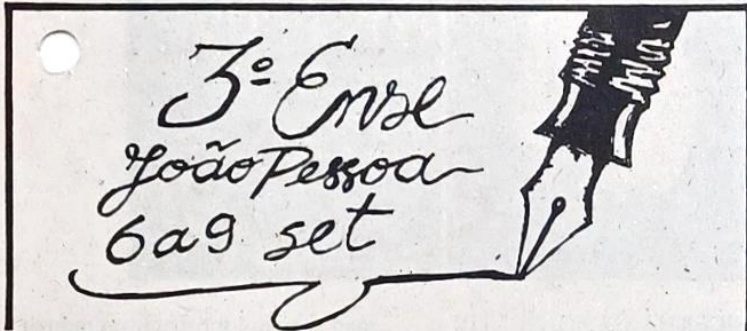 3º Ense
João Pessoa
6 a 9 set